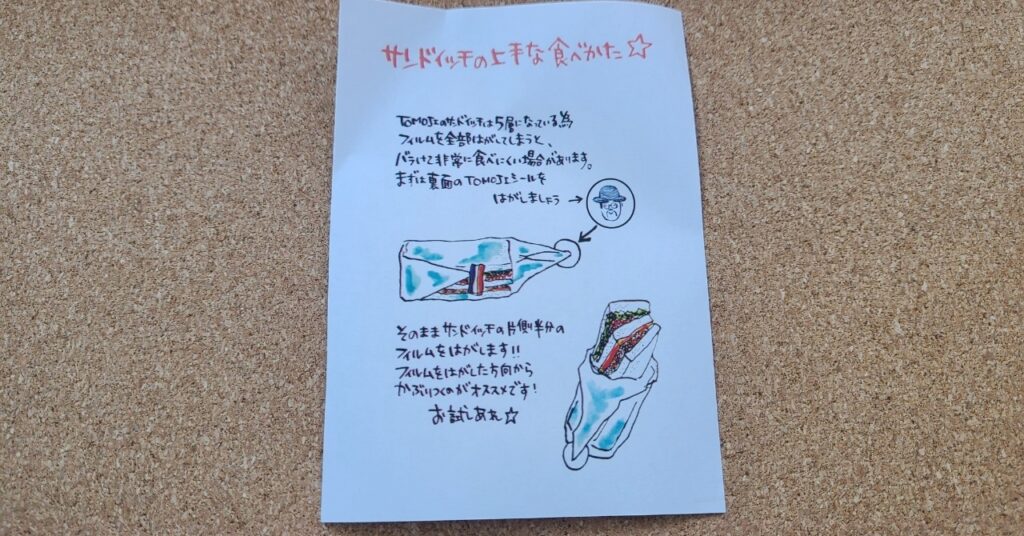 サンドイッチの上手な食べかた☆
TOMOJIのサンドイッチは5層になっている為
フィルムを全部はがしてしまうと、
バラけて非常に食べにくい場合があります。
まずは裏面のTOMOJIシールを
はがしましょう →
そのままサンドイッチの片側半分の
フィルムをはがします!!
フィルムをはがした方向から
かぶりつくのがオススメです!
お試しあれ☆